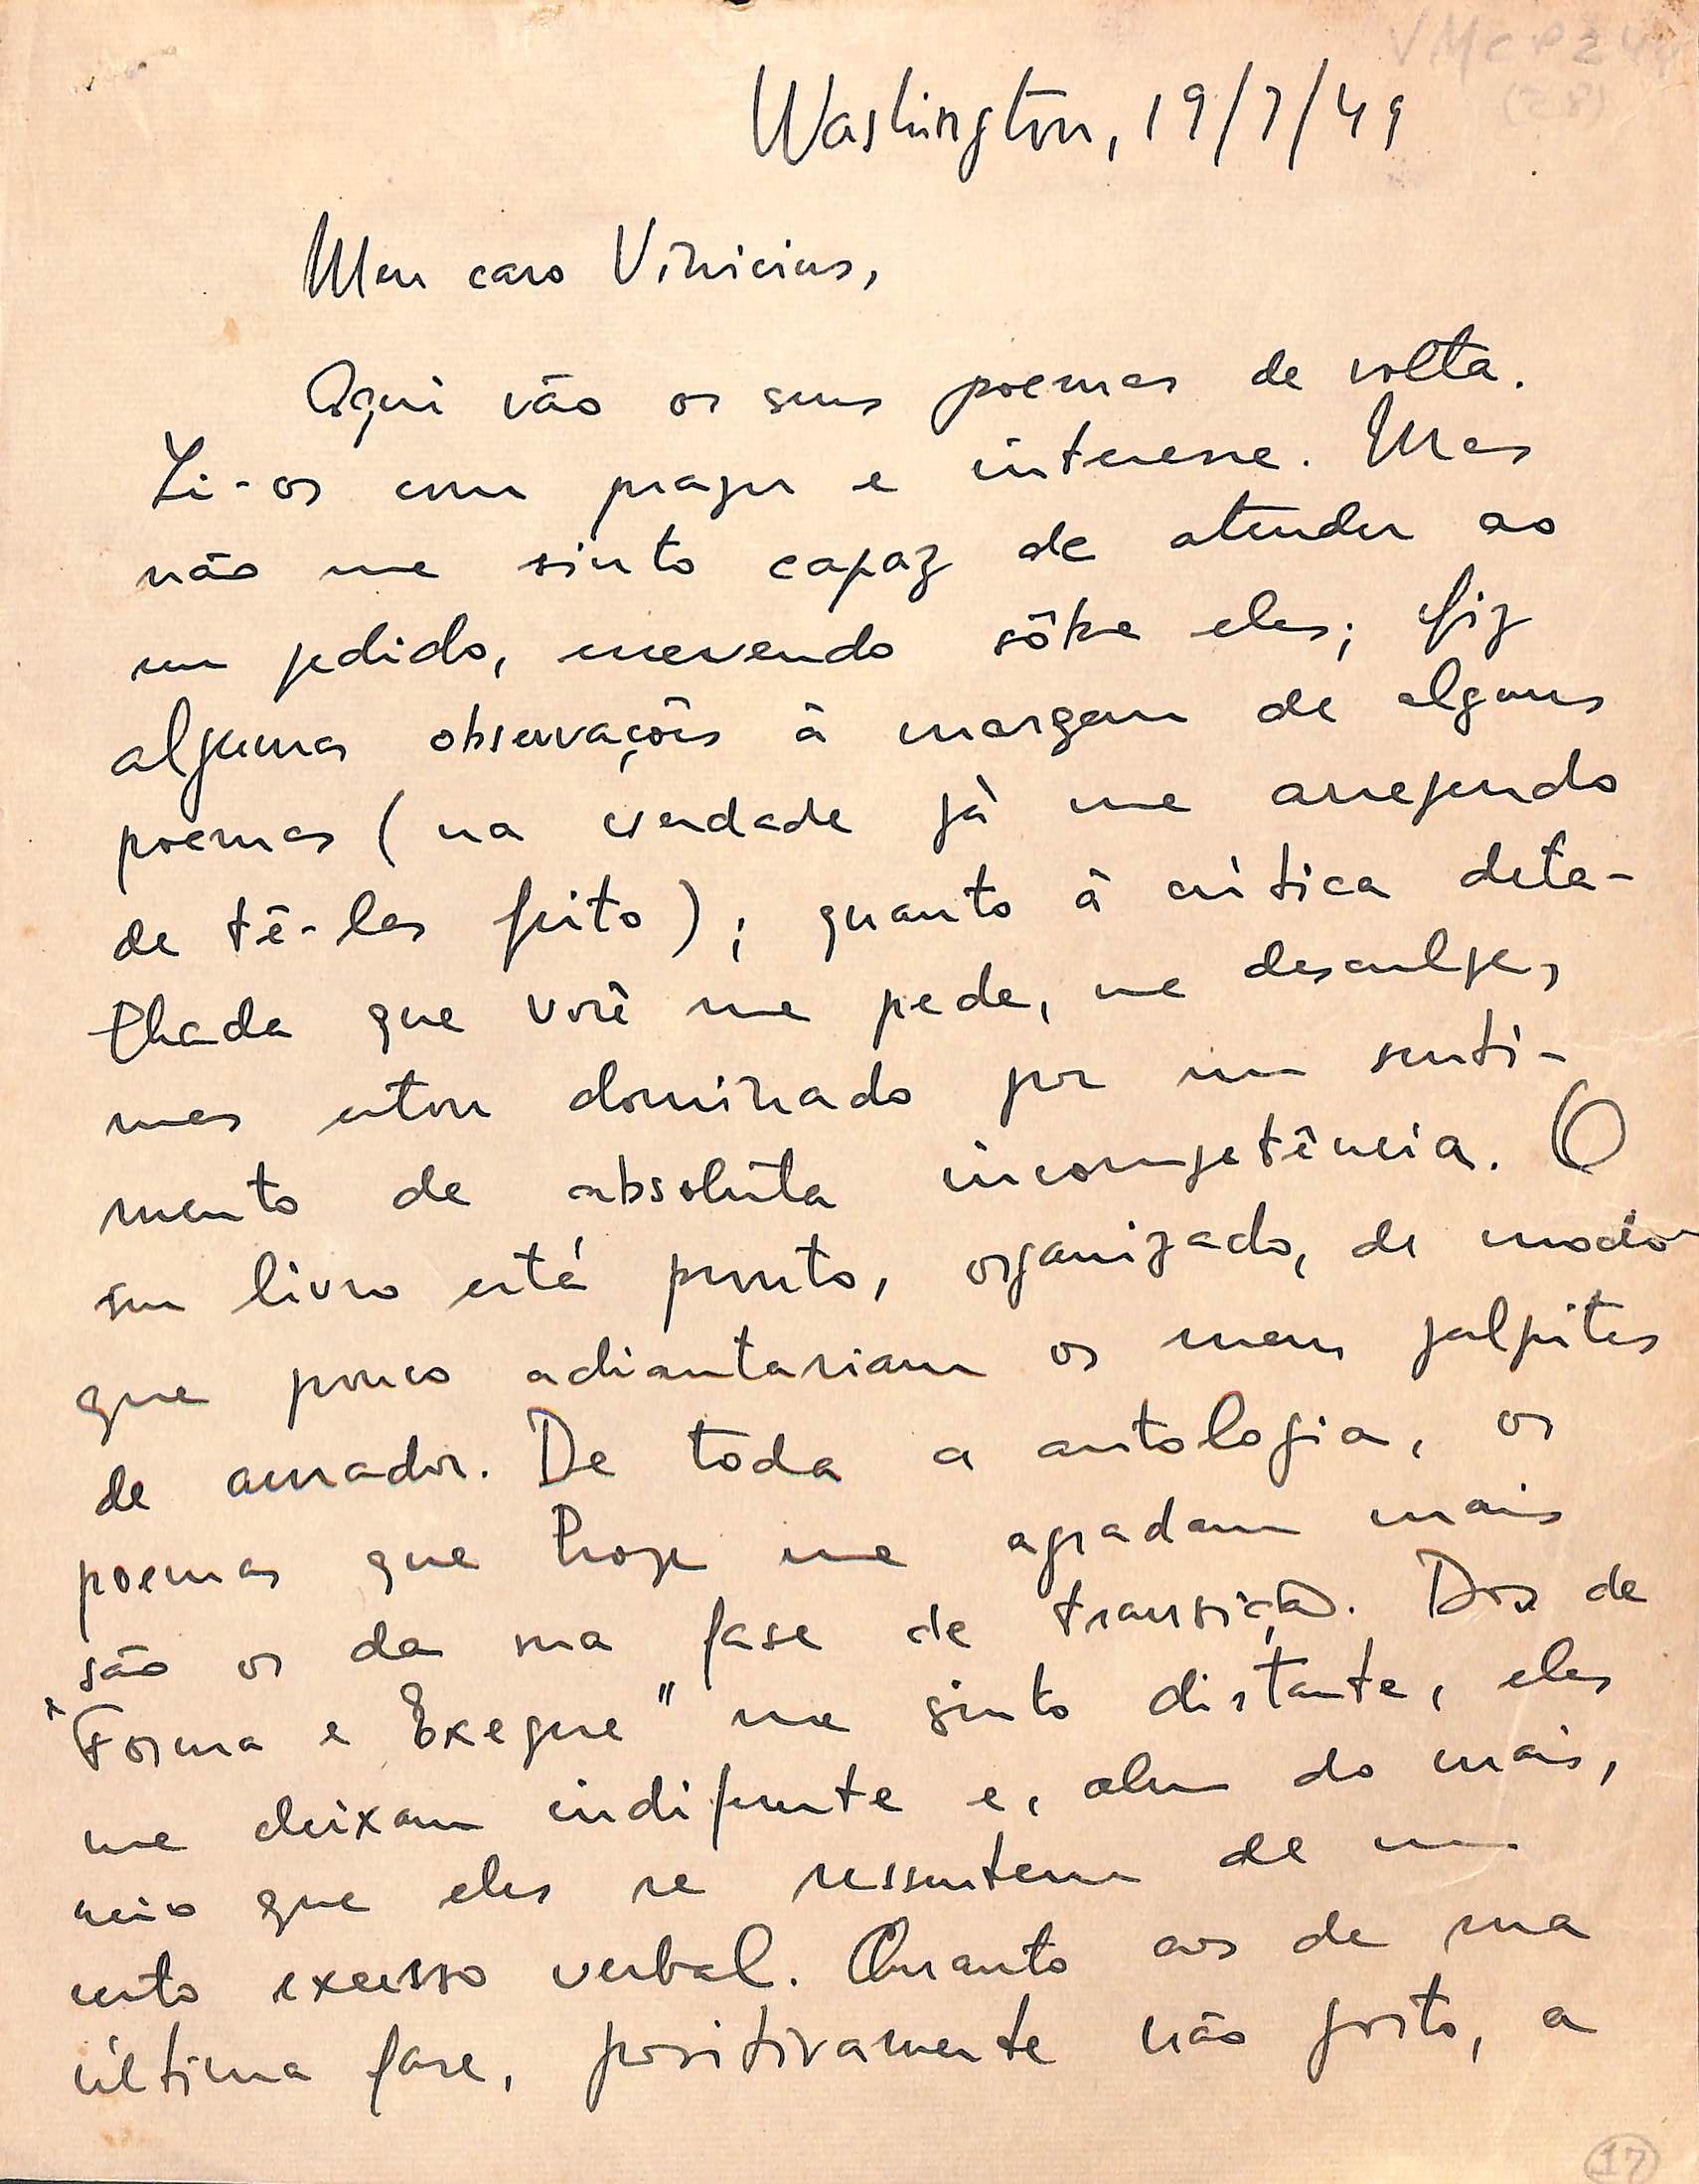 VMCP244
(28)
Washington, 19/7/49
Meu caro Vinicius,
Aqui vão os seus poemas de volta.
Li-os com prazer e interesse. Mas
não me sinto capaz de atender ao
seu pedido, escrevendo sôbre eles; fiz
algumas observações à margem de alguns
poemas (na verdade já me arrependo
de tê-las feito); quanto à crítica deta-
lhada que você me pede, me desculpe,
mas estou dominado por um senti-
mento de absoluta incompetência. O
seu livro está pronto, organizado, de modo
que pouco adiantariam os meus palpites
de amador. De toda a antologia, os
poemas que hoje me agradam mais
são os da sua fase de transição. Dos de
"Forma e Exegese" me sinto distante, eles
me deixam indiferente e, alem do mais,
creio que eles se ressentem de um
certo excesso verbal. Quanto aos de sua
última fase, positivamente não gosto, a
17